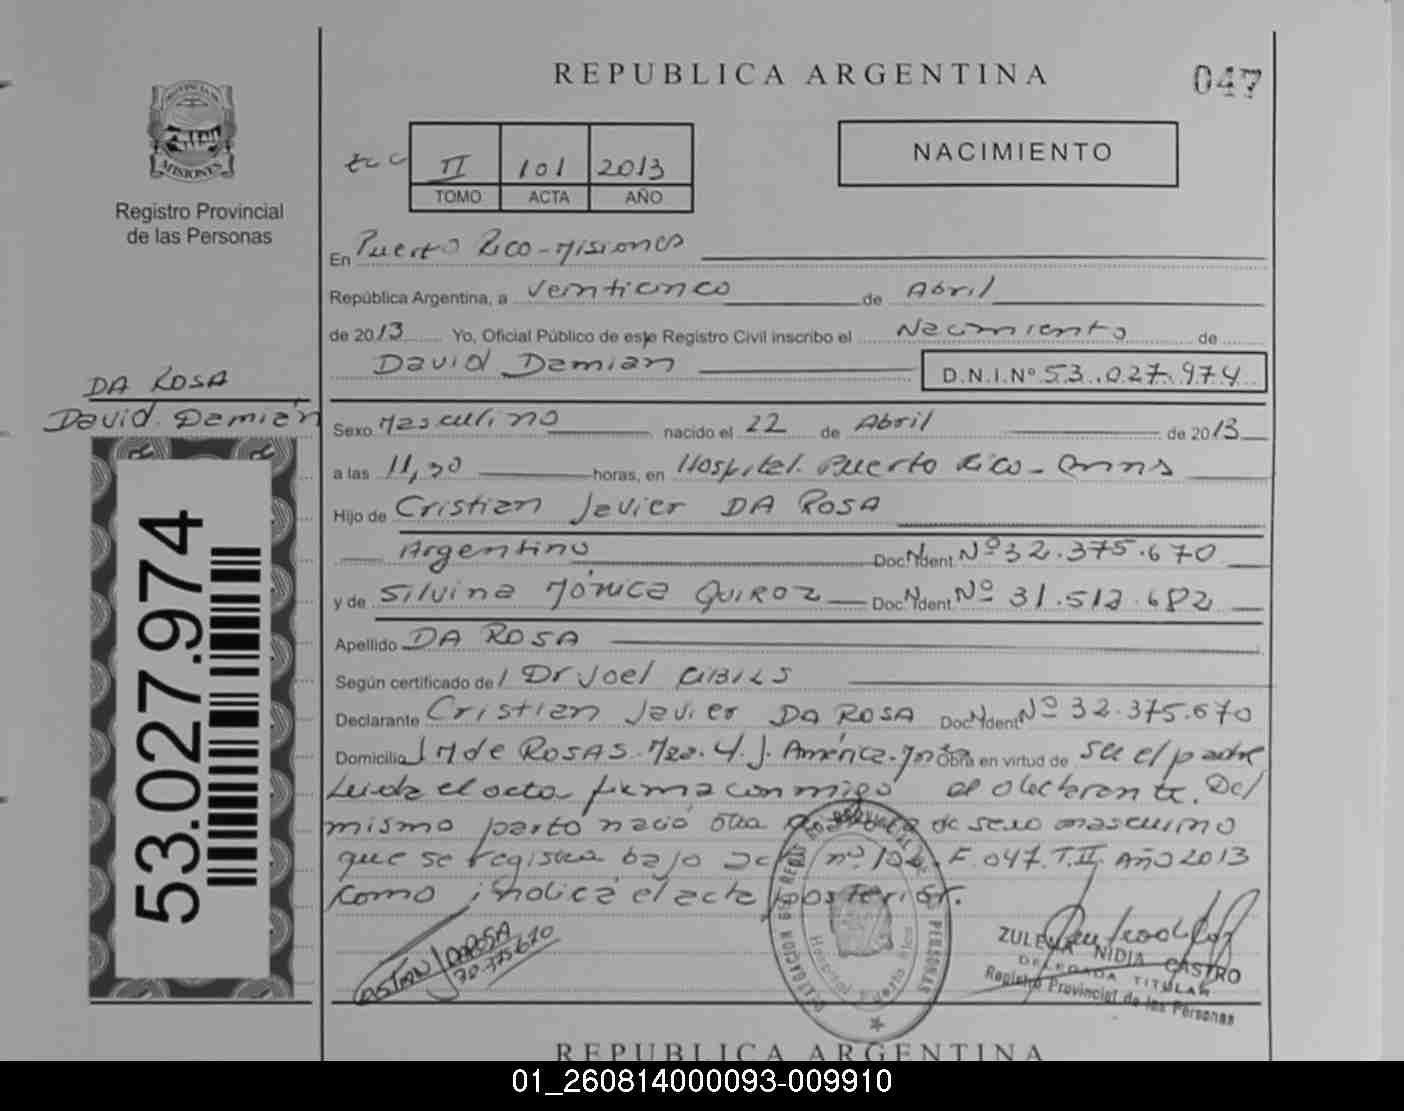 REPUBLICA ARGENTINA
047
PROVINCIA DE
MISIONES
Registro Provincial
de las Personas
II 101 2013
TOMO ACTA AÑO
NACIMIENTO
En Puerto Rico - Misiones
República Argentina, a Veinticinco de Abril
de 2013 Yo, Oficial Público de este Registro Civil inscribo el Nacimiento de
David Damian D.N.I.Nº 53.027.974
DA ROSA
David Damián
Sexo Masculino nacido el 22 de Abril de 2013
a las 11,30 horas, en Hospital Puerto Rico -
Hijo de Cristian Javier DA ROSA
Argentino Doc. Ident. Nº 32.375.670
y de Silvina Mónica QUIROZ Doc. Ident. Nº 31.512.682
Apellido DA ROSA
Según certificado del Dr Joel CIBILS
Declarante Cristian Javier DA ROSA Doc. Ident. Nº 32.375.670
Domicilio J M de ROSAS. 4 J. América. Obra en virtud de ser el padre
Leida el acta firma conmigo el declarante. Del
mismo parto nació otra de sexo masculino
que se registra bajo acta nº 102. F. 047. T. II. Año 2013
como indica el acta posterior.
53.027.974
DA ROSA
DELEGACION REGISTRO PROVINCIAL DE LAS PERSONAS
Hospital Puerto Rico
ZULEMA NIDIA CASTRO
DELEGADA TITULAR
Registro Provincial de las Personas
REPUBLICA ARGENTINA
01_260814000093-009910